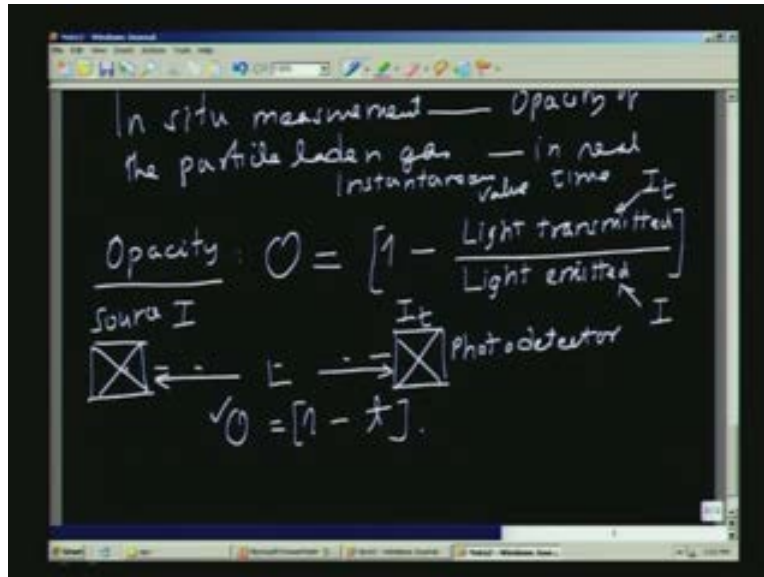 Windows Journal
In situ measurement — Opacity of
the particle laden gas — in real
Instantaneous value time
Opacity : O = [1 - Light transmitted / Light emitted]
It
I
Source I
It
Photodetector
L
✓O = [1 - t].